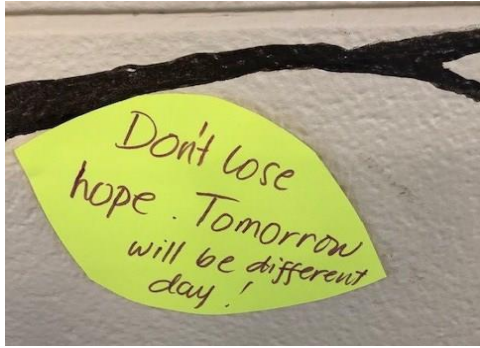 Don't lose
hope. Tomorrow
will be different
day!